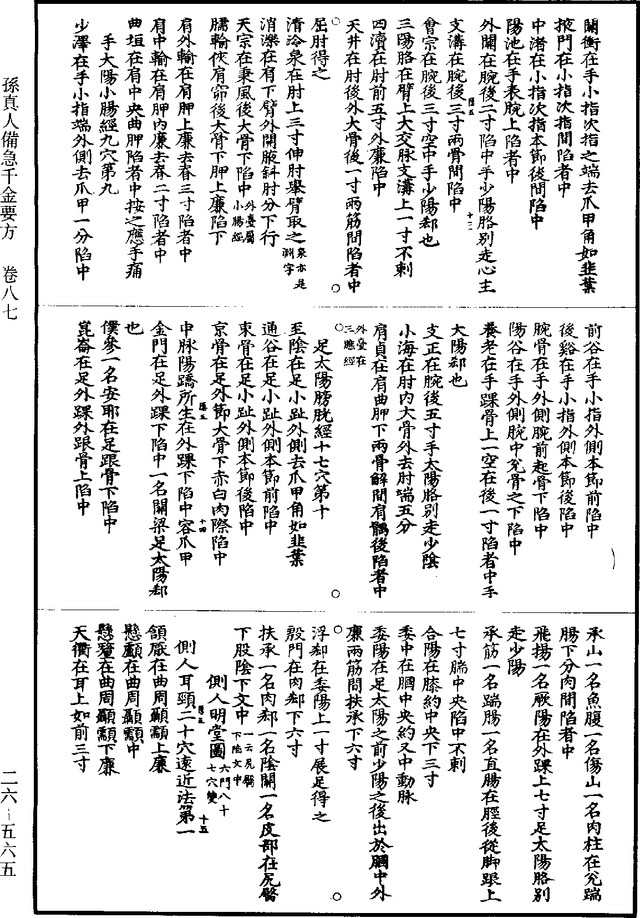 關衝在手小指次指之端去爪甲角如韭葉
掖門在小指次指間陷者中
中渚在小指次指本節後間陷中
陽池在手表腕上陷者中
外關在腕後二寸陷中手少陽胳別走心主
支溝在腕後三寸兩骨間陷中
會宗在腕後三寸空中手少陽郄也
三陽胳在臂上大交脉支溝上一寸不刺
四瀆在肘前五寸外廉陷中
天井在肘後外大骨後一寸兩筋間陷者中
屈肘得之
清冷泉在肘上三寸伸肘舉臂取之泉亦是渕字
消濼在肩下臂外開腋斜肘分下行
天宗在秉風後大骨下陷中外臺屬小腸經
臑輪俠肩窌後大骨下胛上廉陷下
肩外輸在肩胛上廉去脊三寸陷者中
肩中輸在肩胛內廉去脊二寸陷者中
曲垣在肩中央曲胛陷者中按之應手痛
手太陽小腸經九穴第九
少澤在手小指端外側去爪甲一分陷中
前谷在手小指外側本節前陷中
後谿在手小指外側本節後陷中
腕骨在手外側腕前起骨下陷中
陽谷在手外側腕中兊骨之下陷中
養老在手踝骨上一空在後一寸陷者中手
太陽郄也
支正在腕後五寸手太陽胳別走少陰
小海在肘內大骨外去肘端五分
肩貞在肩曲胛下兩骨解間肩髃後陷者中
外臺在三瞧經
足太陽膀胱經十七穴第十
至陰在足小趾外側去爪甲角如韭葉
通谷在足小趾外側本節前陷中
束骨在足小趾外側本節後陷中
京骨在足外側大骨下赤白肉際陷中
申脉陽蹻所生在外踝下陷中容爪甲
金門在足外踝下陷中一名關梁足太陽郄
也
僕參一名安耶在足跟骨下陷中
崑崙在足外踝外跟骨上陷中
承山一名魚腹一名傷山一名肉柱在兊踹
腸下分肉間陷者中
飛揚一名厥陽在外踝上七寸足太陽胳別
走少陽
承筋一名踹腸一名直腸在脛後從脚跟上
七寸腨中央陷中不刺
合陽在膝約中央下三寸
委中在膕中央約文中動脉
委陽在足太陽之前少陽之後出於膕中外
廉兩筋間扶承下六寸
浮郄在委陽上一寸展足得之
殷門在肉郄下六寸
扶承一名肉郄一名陰關一名皮部在尻臀
下股陰下文中一云尻臀下陷文中
側人明堂圖六門八十七穴變
側人耳頸二十穴遠近法第一
頷厭在曲周顳顬上廉
懸顱在曲周顳顬中
懸釐在曲周顳顬下廉
天衝在耳上如前三寸
孫真人備急千金要方 卷八七
二六－五六五